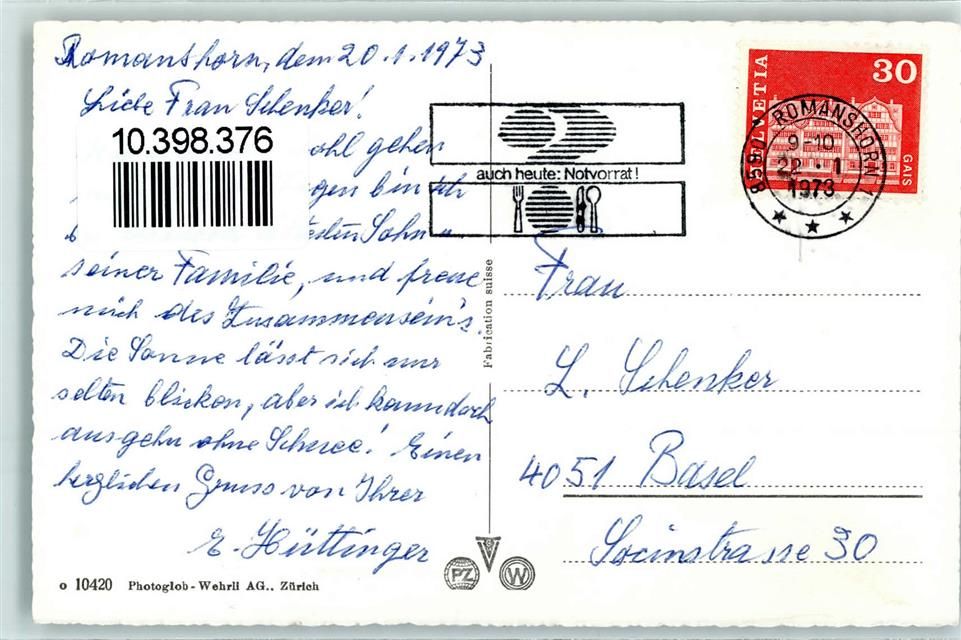 Romanshorn, dem 20.1.1973
Liebe Frau Schenker!
10.398.376
ohl gehen
gen bin ich
Sohn u.
seiner Familie, und freue
mich des Zusammensein's.
Die Sonne lässt sich nur
selten blicken, aber ich kann doch
ausgehn ohne Schnee! Einen
herzlichen Gruss von Ihrer
E. Hüttinger
o 10420 Photoglob-Wehrli AG., Zürich
Fabrication suisse
PZ
W
auch heute: Notvorrat!
HELVETIA
30
GAIS
8590 ROMANSHORN 1
9-10
22.-1
1973
Frau
L. Schenker
4051 Basel
Socinstrasse 30